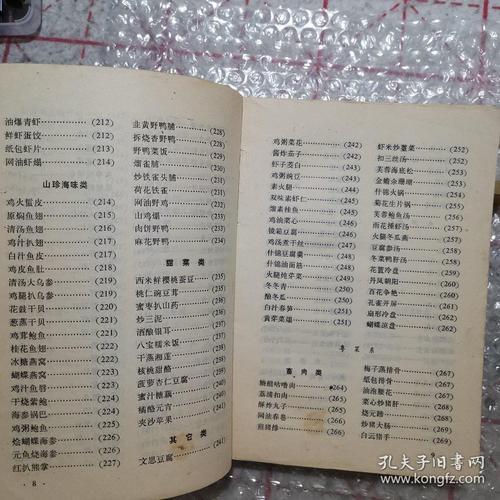 油爆青虾 (212)
鲜虾蛋饺 (212)
纸包虾片 (213)
网油虾塌 (214)
山珍海味类
鸡火蜇皮 (214)
原焖鱼翅 (214)
清汤鱼翅 (215)
鸡汁扒翅 (216)
白汁鱼皮 (217)
鸡皮鱼肚 (217)
清汤大乌参 (217)
鸡腿扒乌参 (218)
花鼓干贝 (219)
葱蒸干贝 (219)
鸡茸鲍鱼 (220)
桂花鱼翅 (220)
冰糖燕窝 (221)
蝴蝶燕窝 (221)
鸡汁鱼唇 (222)
干烧紫鲍 (222)
海参锅巴 (223)
鸡粥鲍鱼 (224)
烩蝴蝶海参 (225)
元鱼烧海参 (226)
红扒熊掌 (227)
8
韭黄野鸭脯 (228)
拆烧香野鸭 (228)
野鸭菜饭 (229)
烟雀脯 (230)
炒铁雀头脯 (230)
荷花铁雀 (231)
网油野鸡 (231)
山鸡塌 (232)
肉饼野鸭 (233)
麻花野鸭 (234)
甜菜类
西米鲜樱桃蚕豆 (234)
桃仁豌豆茸 (235)
蜜枣扒山药 (235)
炒三泥 (235)
酒酿银耳 (237)
八宝糯米饭 (237)
干蒸湘莲 (238)
核桃甜酪 (238)
菠萝杏仁豆腐 (239)
蜜汁糖藕 (239)
橘酪元宵 (240)
夹沙苹果 (240)
其它类
文思豆腐 (241)
鸡粥菜花 (242)
酱炸茄子 (242)
虾子茭白 (242)
鸡粥豌豆 (243)
素火腿 (243)
双味素虾仁 (244)
熘素桂鱼 (244)
鸡油菜心 (245)
镜箱豆腐 (245)
鸡汤煮干丝 (246)
什锦豆腐羹 (247)
什锦油面筋 (247)
火腿炖芽菜 (248)
冬冬青 (249)
酿冬瓜 (250)
白汁春笋 (251)
黄芽菜煨 (251)
虾米炒蕹菜 (252)
扣三丝汤 (252)
芙蓉海底松 (253)
金蟾余珊瑚 (253)
什锦火锅 (254)
菊花生片锅 (255)
芙蓉鲍鱼汤 (256)
雨花捶虾汤 (256)
火腿冬瓜燕 (257)
豆腐参汤 (258)
冬菜鸭肝汤 (258)
花篮冷盘 (259)
丹凤朝阳 (259)
百花争艳 (260)
孔雀开屏 (261)
扇形冷盘 (261)
蝴蝶凉盘 (262)
粤菜系
畜肉类
糖醋咕噜肉 (264)
荔浦扣肉 (264)
酥炸丸子 (265)
网油春卷 (266)
煎猪排 (266)
梅子蒸排骨 (267)
纸包排骨 (267)
油泡腰花 (267)
菜心炒猪肝 (268)
烧元蹄 (268)
炒猪大肠 (269)
白云猪手 (269)
孔夫子旧书网
www.kongfz.com